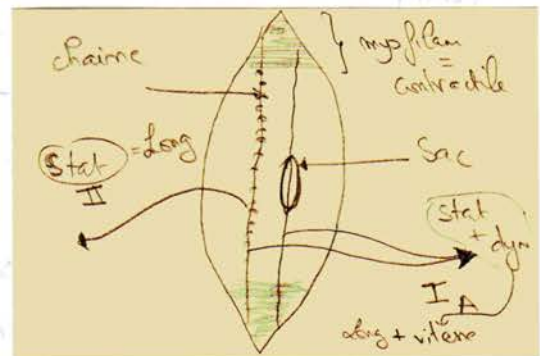 chaine
myofilam
=
contractile
Stat = Long
II
Sac
Stat
+ dyn
I A
Long + vitesse